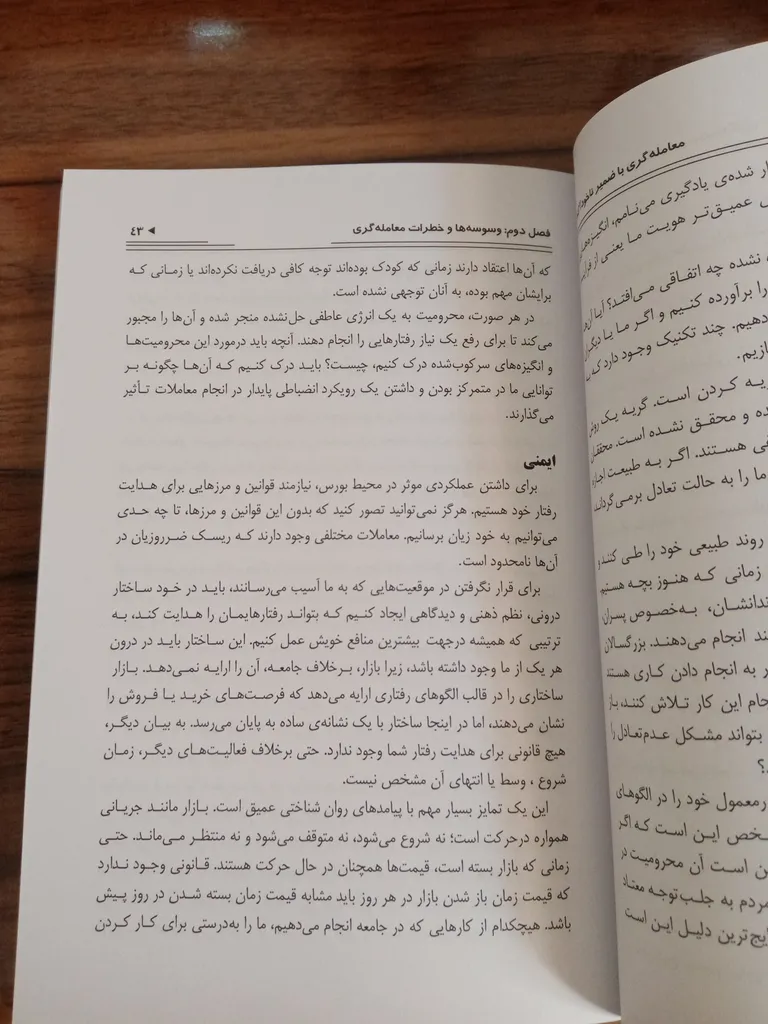 معامله‌گری با ضمیر
شده‌ی یادگیری می‌نامم، انگیزه‌ها
عمیق‌تر هویت ما یعنی از
نشده چه اتفاقی می‌افتد؟ آیا آن‌ها
را برآورده کنیم و اگر ما یا دیگران
دهیم. چند تکنیک وجود دارد که
کردن است. گریه یک روش
و محقق نشده است. محققان
هستند. اگر به طبیعت اجازه
ما را به حالت تعادل برمی‌گرداند
روند طبیعی خود را طی کنند و
زمانی که هنوز بچه هستیم
به‌خصوص پسران
انجام می‌دهند. بزرگسالان
به انجام دادن کاری هستند
این کار تلاش کنند، باز
بتواند مشکل عدم‌تعادل را
معمول خود را در الگوهای
این است که اگر
است آن محرومیت در
مردم به جلب‌توجه معتاد
ترین دلیل این است
فصل دوم: وسوسه‌ها و خطرات معامله‌گری ◄ ٤٣
که آن‌ها اعتقاد دارند زمانی که کودک بوده‌اند توجه کافی دریافت نکرده‌اند یا زمانی که
برایشان مهم بوده، به آنان توجهی نشده است.
در هر صورت، محرومیت به یک انرژی عاطفی حل‌نشده منجر شده و آن‌ها را مجبور
می‌کند تا برای رفع یک نیاز رفتارهایی را انجام دهند. آنچه باید درمورد این محرومیت‌ها
و انگیزه‌های سرکوب‌شده درک کنیم، چیست؟ باید درک کنیم که آن‌ها چگونه بر
توانایی ما در متمرکز بودن و داشتن یک رویکرد انضباطی پایدار در انجام معاملات تأثیر
می‌گذارند.
ایمنی
برای داشتن عملکردی موثر در محیط بورس، نیازمند قوانین و مرزهایی برای هدایت
رفتار خود هستیم. هرگز نمی‌توانید تصور کنید که بدون این قوانین و مرزها، تا چه حدی
می‌توانیم به خود زیان برسانیم. معاملات مختلفی وجود دارند که ریسک ضرروزیان در
آن‌ها نامحدود است.
برای قرار نگرفتن در موقعیت‌هایی که به ما آسیب می‌رسانند، باید در خود ساختار
درونی، نظم ذهنی و دیدگاهی ایجاد کنیم که بتواند رفتارهایمان را هدایت کند، به
ترتیبی که همیشه درجهت بیشترین منافع خویش عمل کنیم. این ساختار باید در درون
هر یک از ما وجود داشته باشد، زیرا بازار، برخلاف جامعه، آن را ارایه نمی‌دهد. بازار
ساختاری را در قالب الگوهای رفتاری ارایه می‌دهد که فرصت‌های خرید یا فروش را
نشان می‌دهند، اما در اینجا ساختار با یک نشانه‌ی ساده به پایان می‌رسد. به بیان دیگر،
هیچ قانونی برای هدایت رفتار شما وجود ندارد. حتی برخلاف فعالیت‌های دیگر، زمان
شروع ، وسط یا انتهای آن مشخص نیست.
این یک تمایز بسیار مهم با پیامدهای روان شناختی عمیق است. بازار مانند جریانی
همواره درحرکت است؛ نه شروع می‌شود، نه متوقف می‌شود و نه منتظر می‌ماند. حتی
زمانی که بازار بسته است، قیمت‌ها همچنان در حال حرکت هستند. قانونی وجود ندارد
که قیمت زمان باز شدن بازار در هر روز باید مشابه قیمت زمان بسته شدن در روز پیش
باشد. هیچکدام از کارهایی که در جامعه انجام می‌دهیم، ما را به‌درستی برای کار کردن